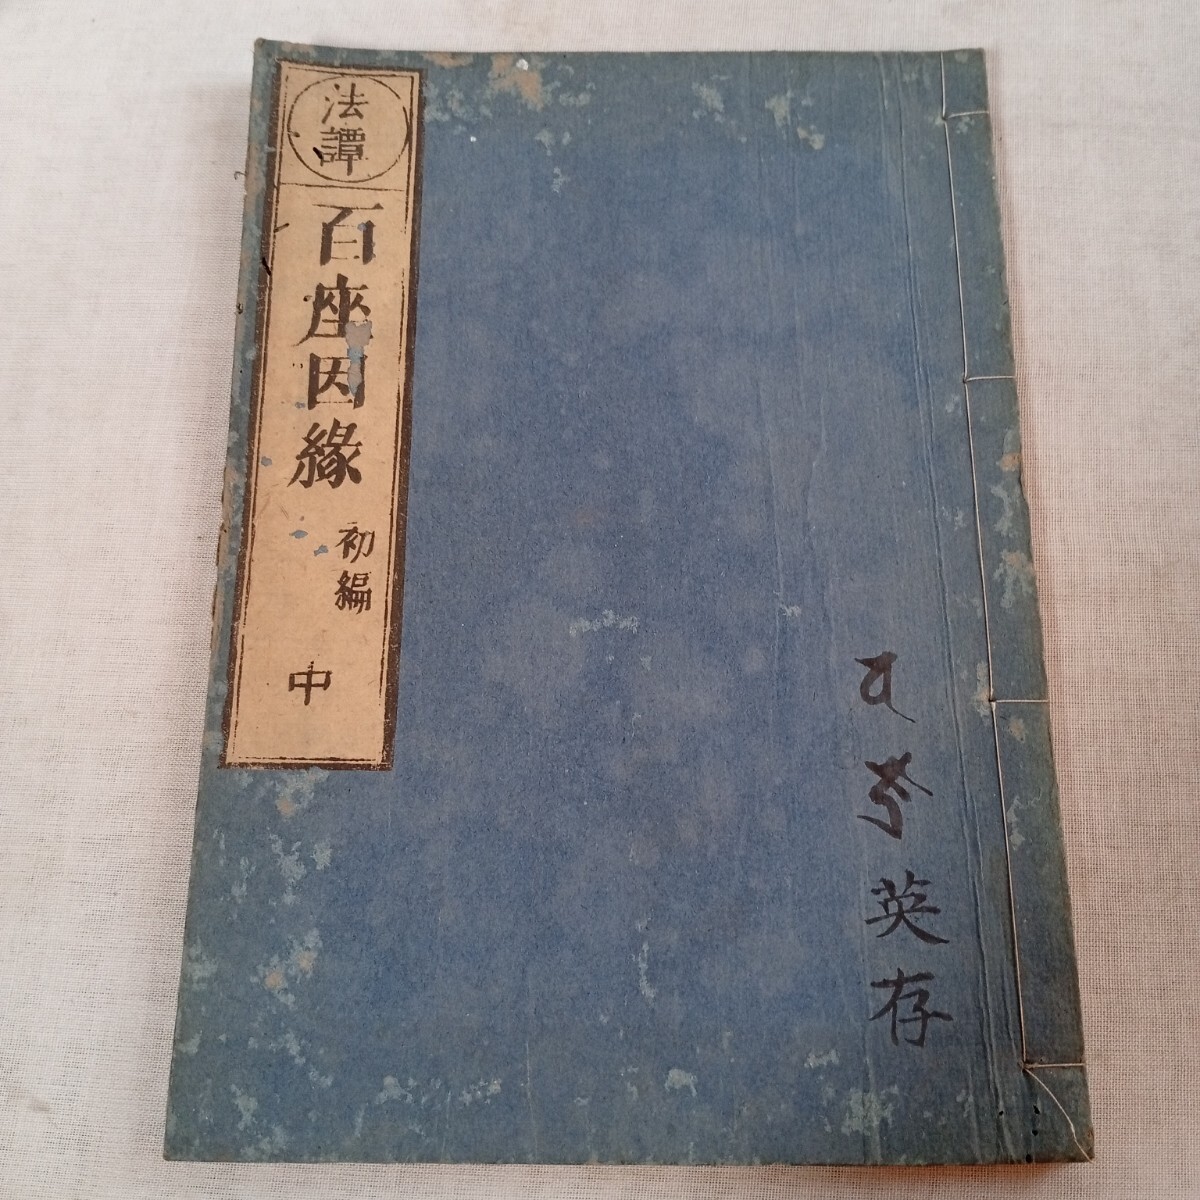 法譚
百座因縁
初編
中
英存